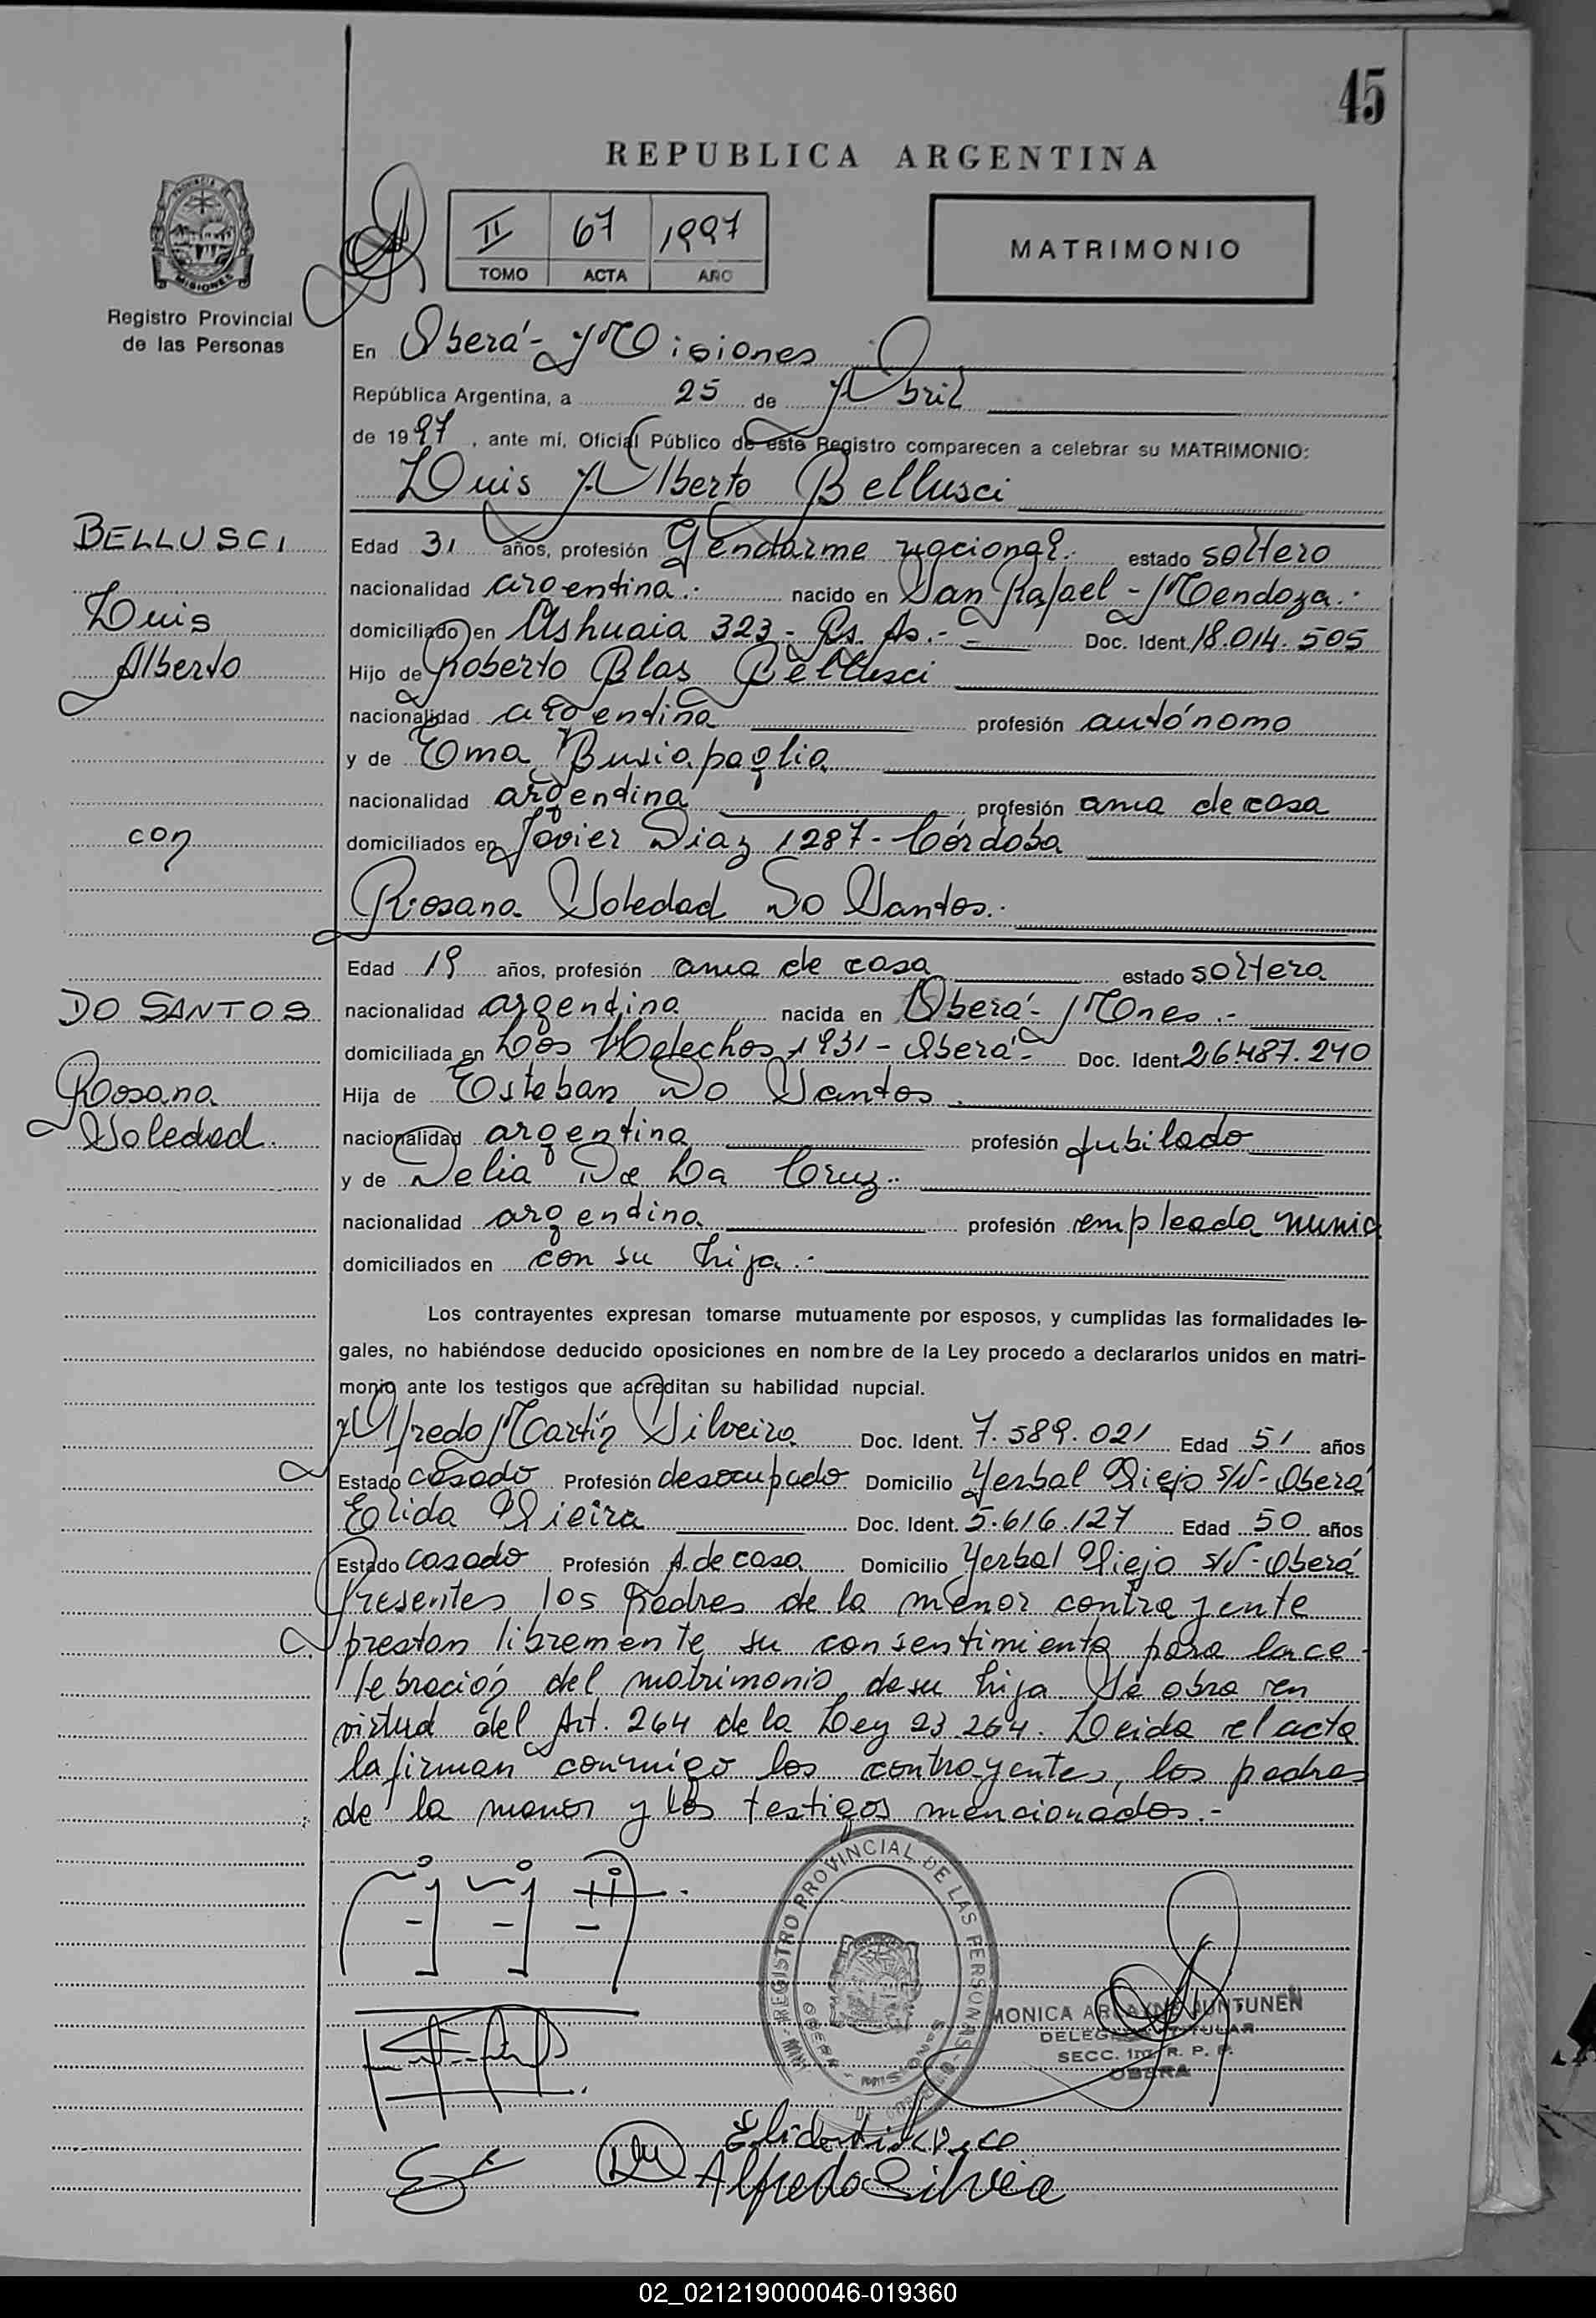 45
REPUBLICA ARGENTINA
PROVINCIA DE
MISIONES
Registro Provincial
de las Personas
II 67 1997
TOMO ACTA AÑO
MATRIMONIO
En Oberá - Misiones
República Argentina, a 25 de Abril
de 1997, ante mí, Oficial Público de este Registro comparecen a celebrar su MATRIMONIO:
Luis Alberto Bellusci
BELLUSCI
Luis
Alberto
Edad 31 años, profesión Gendarme nacional. estado soltero
nacionalidad argentina. nacido en San Rafael - Mendoza.
domiciliado en Ushuaia 323 - Bs. As. - Doc. Ident. 18.014.505
Hijo de Roberto Blas Bellusci
nacionalidad argentina profesión autónomo
y de Ema
nacionalidad argentina profesión ama de casa
con
domiciliados en Javier Diaz 1287 - Córdoba
Rosana Soledad Do Santos.
Edad 19 años, profesión ama de casa estado soltera
DO SANTOS
Rosana
Soledad.
nacionalidad argentina nacida en Oberá - Mnes. -
domiciliada en Los Helechos 1931 - Oberá - Doc. Ident. 26.487.240
Hija de Esteban Do Santos.
nacionalidad argentina profesión jubilado
y de Delia De La Cruz.
nacionalidad argentina profesión empleada munic
domiciliados en con su hija.
Los contrayentes expresan tomarse mutuamente por esposos, y cumplidas las formalidades le-
gales, no habiéndose deducido oposiciones en nombre de la Ley procedo a declararlos unidos en matri-
monio ante los testigos que acreditan su habilidad nupcial.
Alfredo Martín Silveira Doc. Ident. 7.589.021 Edad 51 años
Estado casado Profesión desocupado Domicilio Yerbal Viejo S/N - Oberá
Elida Vieira Doc. Ident. 5.616.127 Edad 50 años
Estado casado Profesión A. de casa Domicilio Yerbal Viejo S/N - Oberá
Presentes los Padres de la menor contrayente
prestan libremente su consentimiento para la ce-
lebración del matrimonio de su hija. Se obra en
virtud del Art. 264 de la Ley 23.264. Leida el acta
la firman conmigo los contrayentes, los padres
de la menor y los testigos mencionados. -
REGISTRO PROVINCIAL DE LAS PERSONAS
MONICA JUNTUNEN
DELEGADA TITULAR
SECC. R. P. P.
OBERA
Alfredo Silveira
02_021219000046-019360